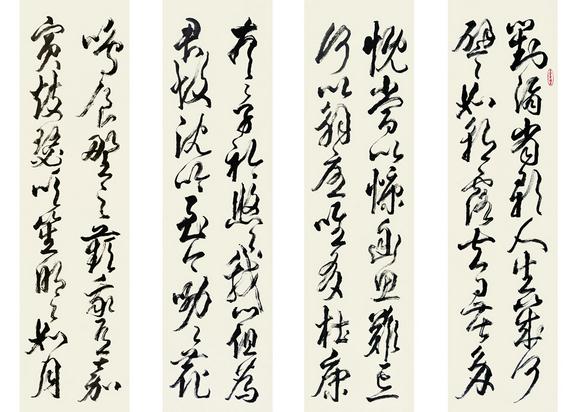 對酒當歌人生幾何
譬如朝露去日苦多
慨當以慷幽思難忘
何以解憂唯有杜康
青々子衿悠々我心但為
君故沈吟至今呦々鹿
鳴食野之蘋我有嘉
賓鼓瑟吹笙明々如月